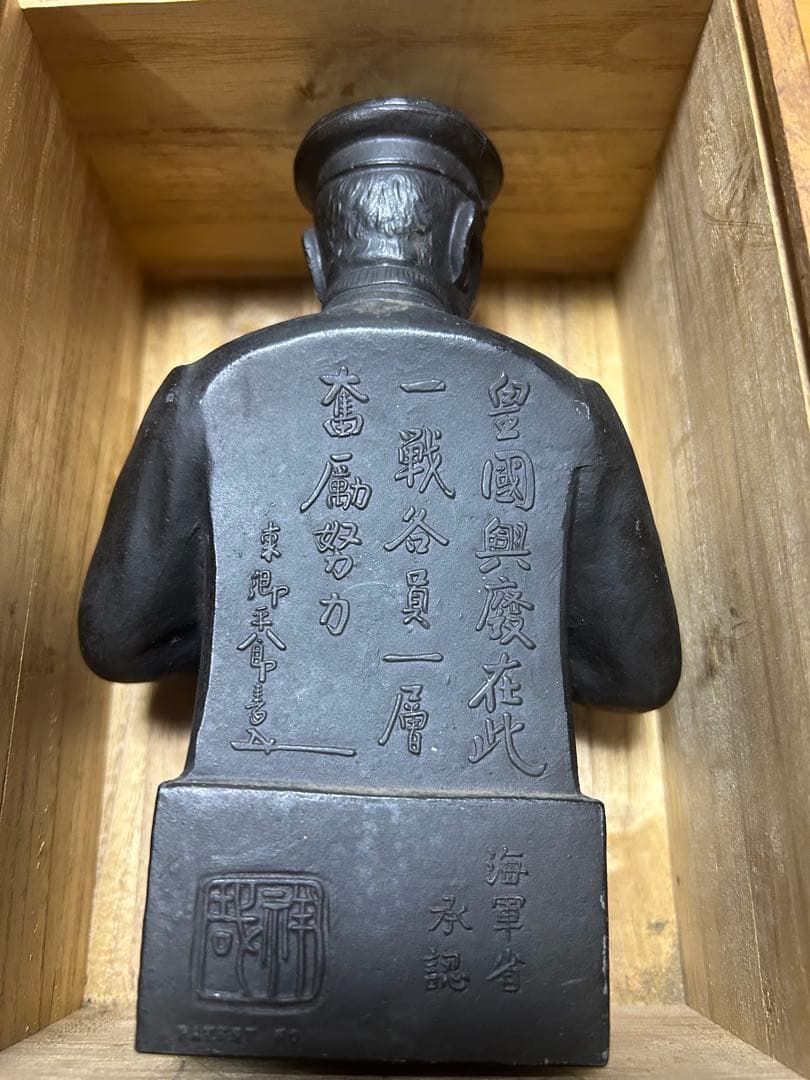 皇國興廢在此
一戦各員一層
奮勵努力
東郷平八郎書
海軍省
承認
祥哉
PATENT NO